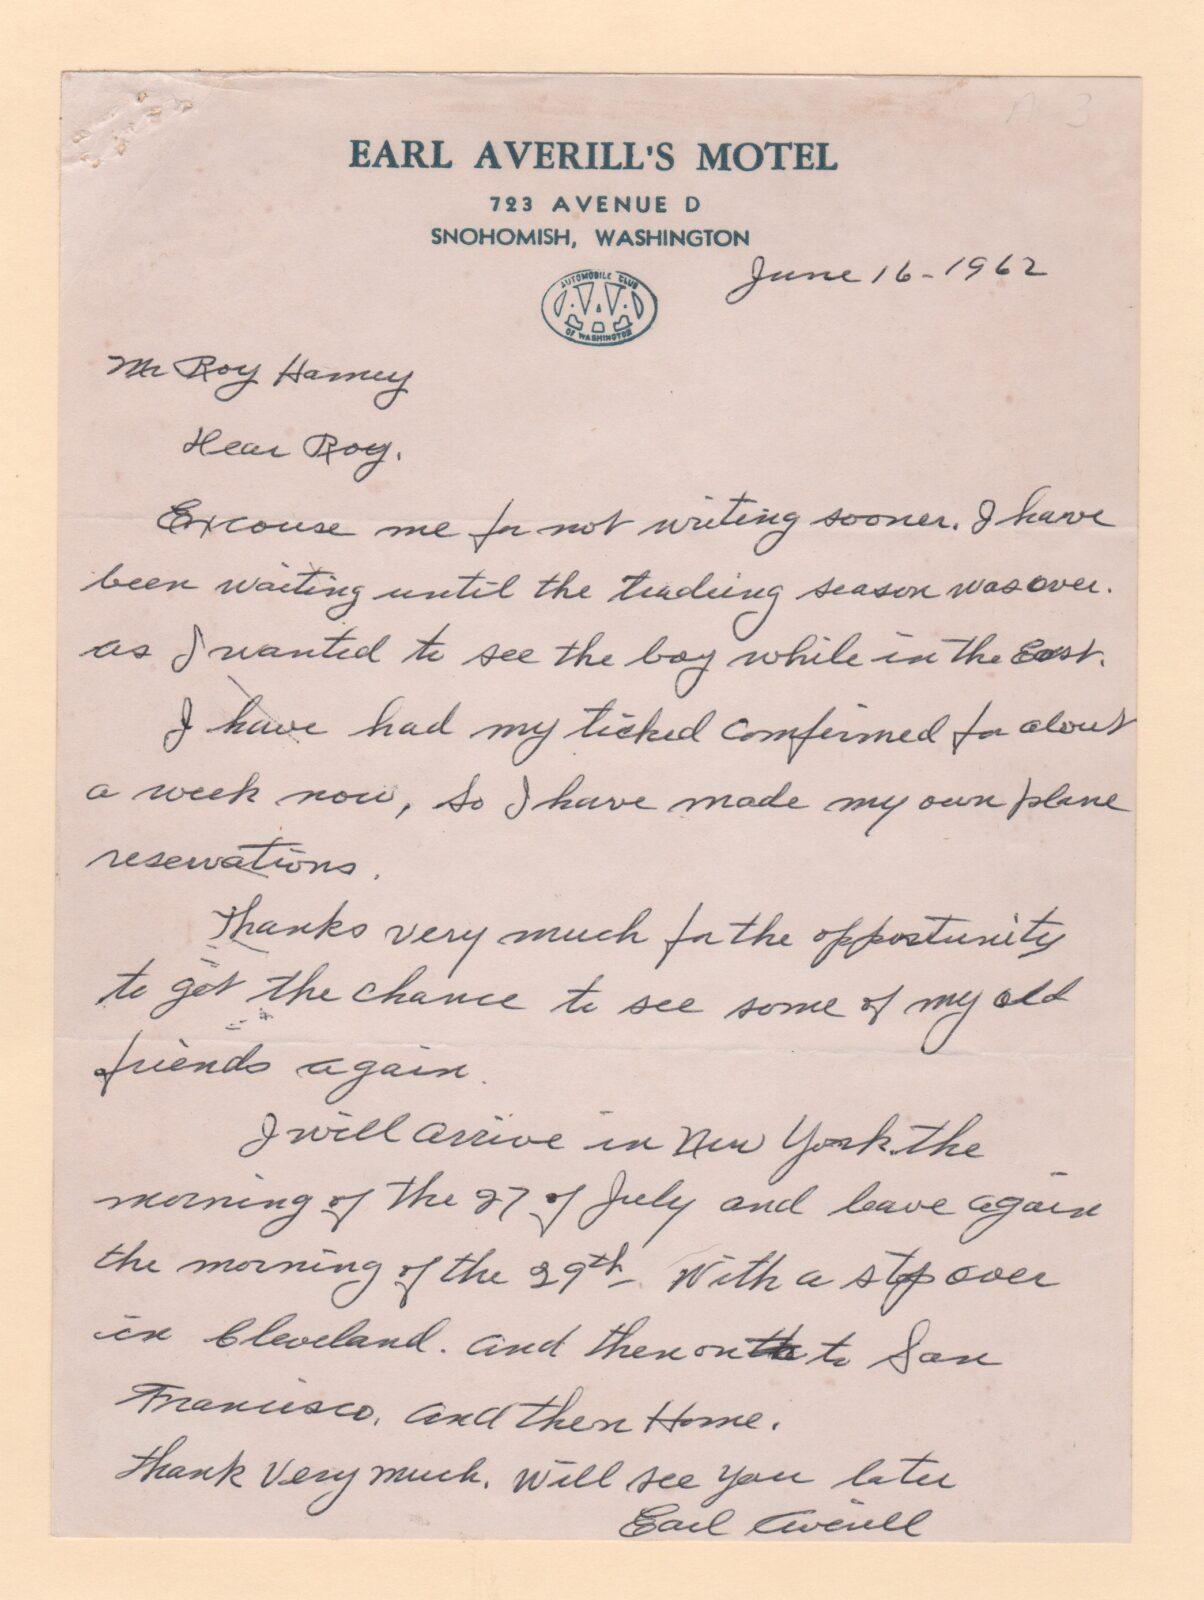 A 3
EARL AVERILL'S MOTEL
723 AVENUE D
SNOHOMISH, WASHINGTON
June 16-1962
AUTOMOBILE CLUB
OF WASHINGTON
Mr Roy Hamey
Dear Roy.
Excouse me for not writing sooner. I have
been waiting until the tradeing season was over.
as I wanted to see the boy while in the East.
I have had my ticked comfirmed for about
a week now, so I have made my own plane
reservations.
Thanks very much for the oppostunity
to get the chance to see some of my old
friends again.
I will arrive in New York the
morning of the 27 of July and leave again
the morning of the 29th. With a stop over
in Cleveland. and then on to San
Francisco. and then Home.
Thank Very much. Will see you later
Earl Averill